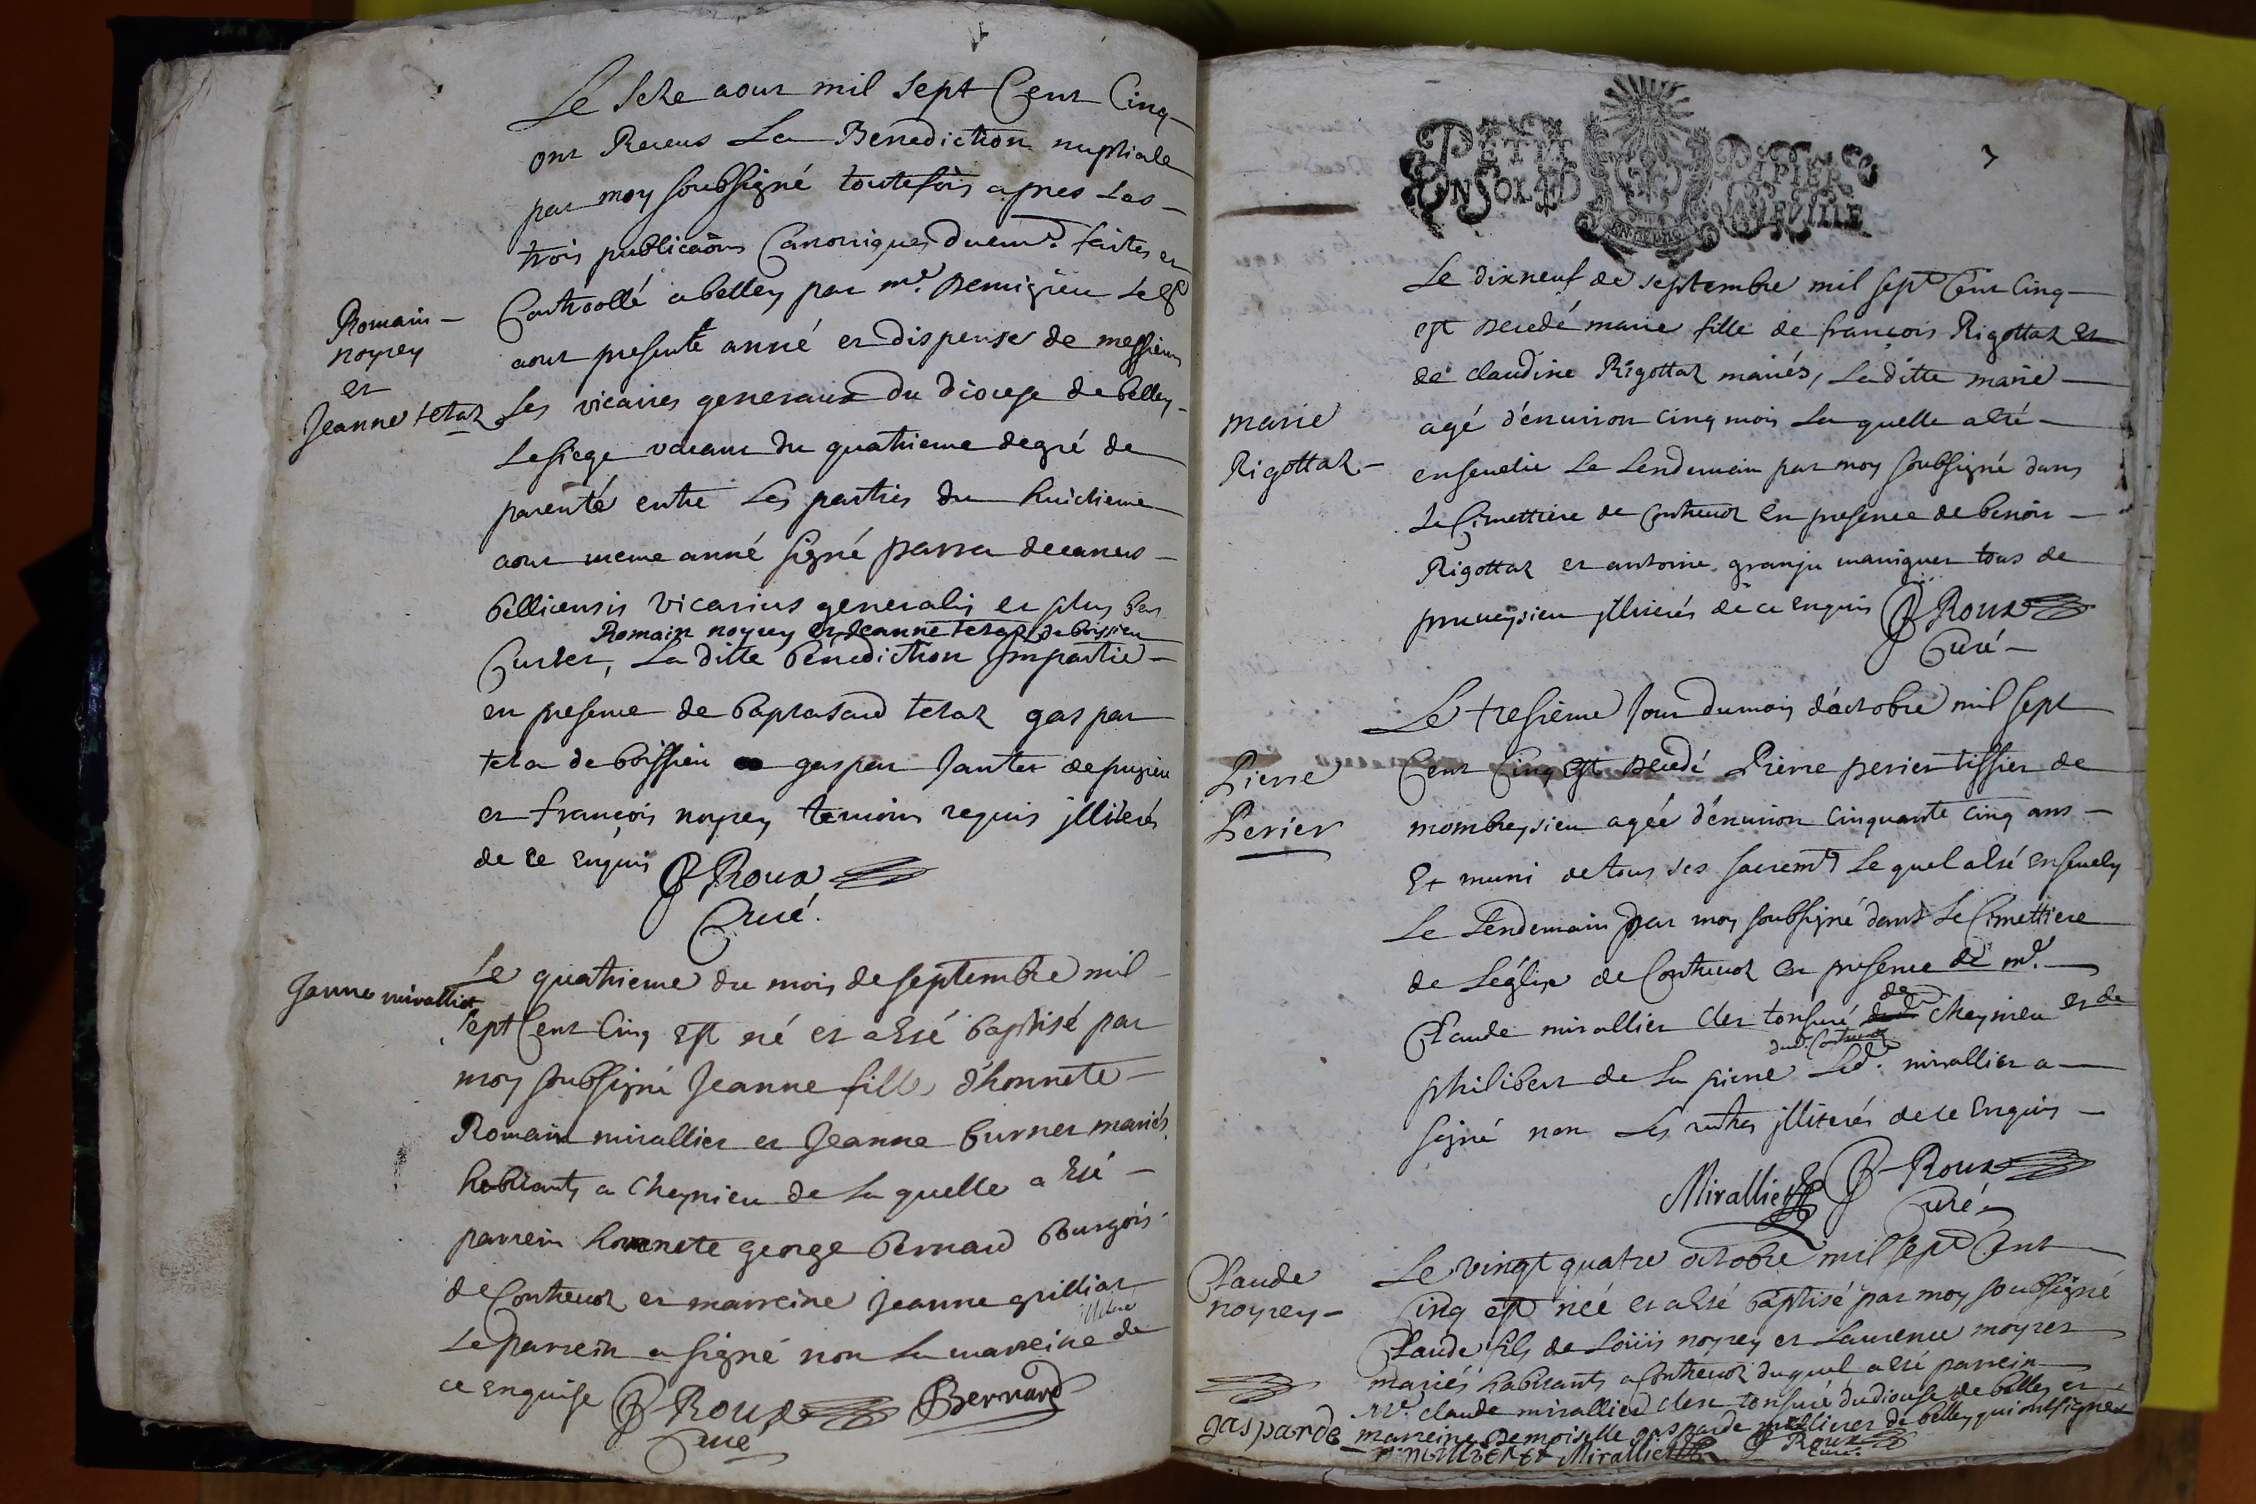 Le seze aout mil sept Cent Cinq
ont Receus La Benediction nuptiale
par moy soubsigné toutefois apres Les
trois publicaõns Canoniques duemt. faites et
Controollé a belley par mr. Demigieu Le 8e
Romain
noyrey
et
Jeanne tetaz
aout presente anné et dispense de messieurs
Les vicaires generaux du diocese de belley
Le siege vacant du quatrieme degré de
parenté entre Les parties du huictieme
aout meme anné signé parra decanus
bellicensis vicarius generalis et plus bas
Romain noyrey et Jeanne tetaz de boissieu
, La ditte benediction Impartie
en presence de tetaz gaspar
teta de boissieu gaspar Jantet de pugieu
et françois noyrey temoins requis illiterés
de ce enquis Roux
Curé.
Janne mirallier
Le quatrieme du mois de septembre mil
sept Cent Cinq Est né et a Esté baptisé par
moy soubsigné Jeanne fille d'honnete
Romain mirallier et Jeanne burnet mariés
habitants a Cheynieu de La quelle a Esté
parrein honnete george bernard bourgois
de Contrevoz et marreine Jeanne grilliat
illiteré
Le parrein a signé non La marreine de
ce enquise Roux Bernard
Curé
PETIT PAPIER
UN SOL
7
Le dixneuf de septembre mil sept Cent Cinq
est decedé marie fille de françois Rigottaz et
de claudine Rigottaz mariés, La ditte marie
marie
Rigottaz
agé d'environ cinq mois La quelle a Eté
ensevelie Le Lendemain par moy soubsigné dans
Le Cimettiere de Contrevoz En presence de benoit
Rigottaz et antoine granju tous de
preveysieu illiterés de ce Enquis Roux
Curé
Le tresième Jour du mois d'actobre mil sept
Pierre
Perier
Cent Cinq Est decedé Pierre perier tissier de
mombreysieu agée d'environ Cinquante cinq ans
Et muni de tous ses sacremts Le quel a Esté Ensevely
Le Lendemain par moy soubsigné dans Le Cimettiere
de L'église de Contrevoz en presence de mr.
de
Claude mirallier cler tonsuré Cheynieu et de
dud. Contrevoz
philibert de La pierre Led. mirallier a
signé non Les autres illiterés de ce Enquis
Mirallier Roux
Curé
Claude
noyrey
Le vingt quatre octobre mil sept Cent
Cinq est née et a Esté baptisé par moy soubsigné
Claude fils de Loüis noyrey et Laurence moyret
mariés habitants a Contrevoz duquel a Esté parrein
Mr. claude mirallier clerc tonsuré du diocese de belley et
gasparde
marreine Demoiselle gasparde de belley qui ont signés
Mirallier Roux
Curé.